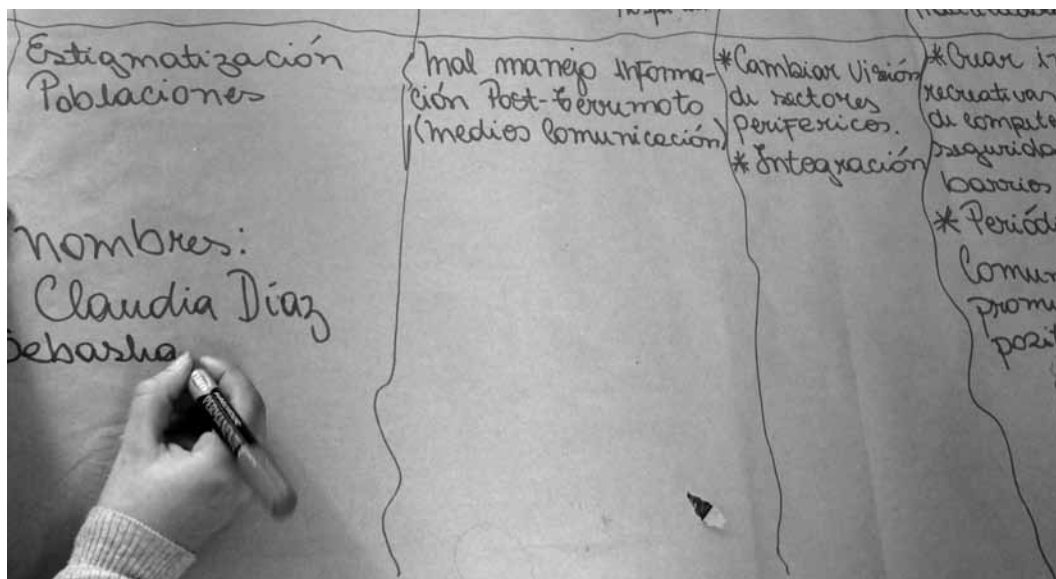 Estigmatización
Poblaciones
nombres:
Claudia Díaz
Sebastia
Mal manejo Informa-
ción Post-terremoto
(medios Comunicación)
*Cambiar Visión
de sectores
perifericos.
*Integración
*Crear
recreativas
de
barrios
*
PERMANENT